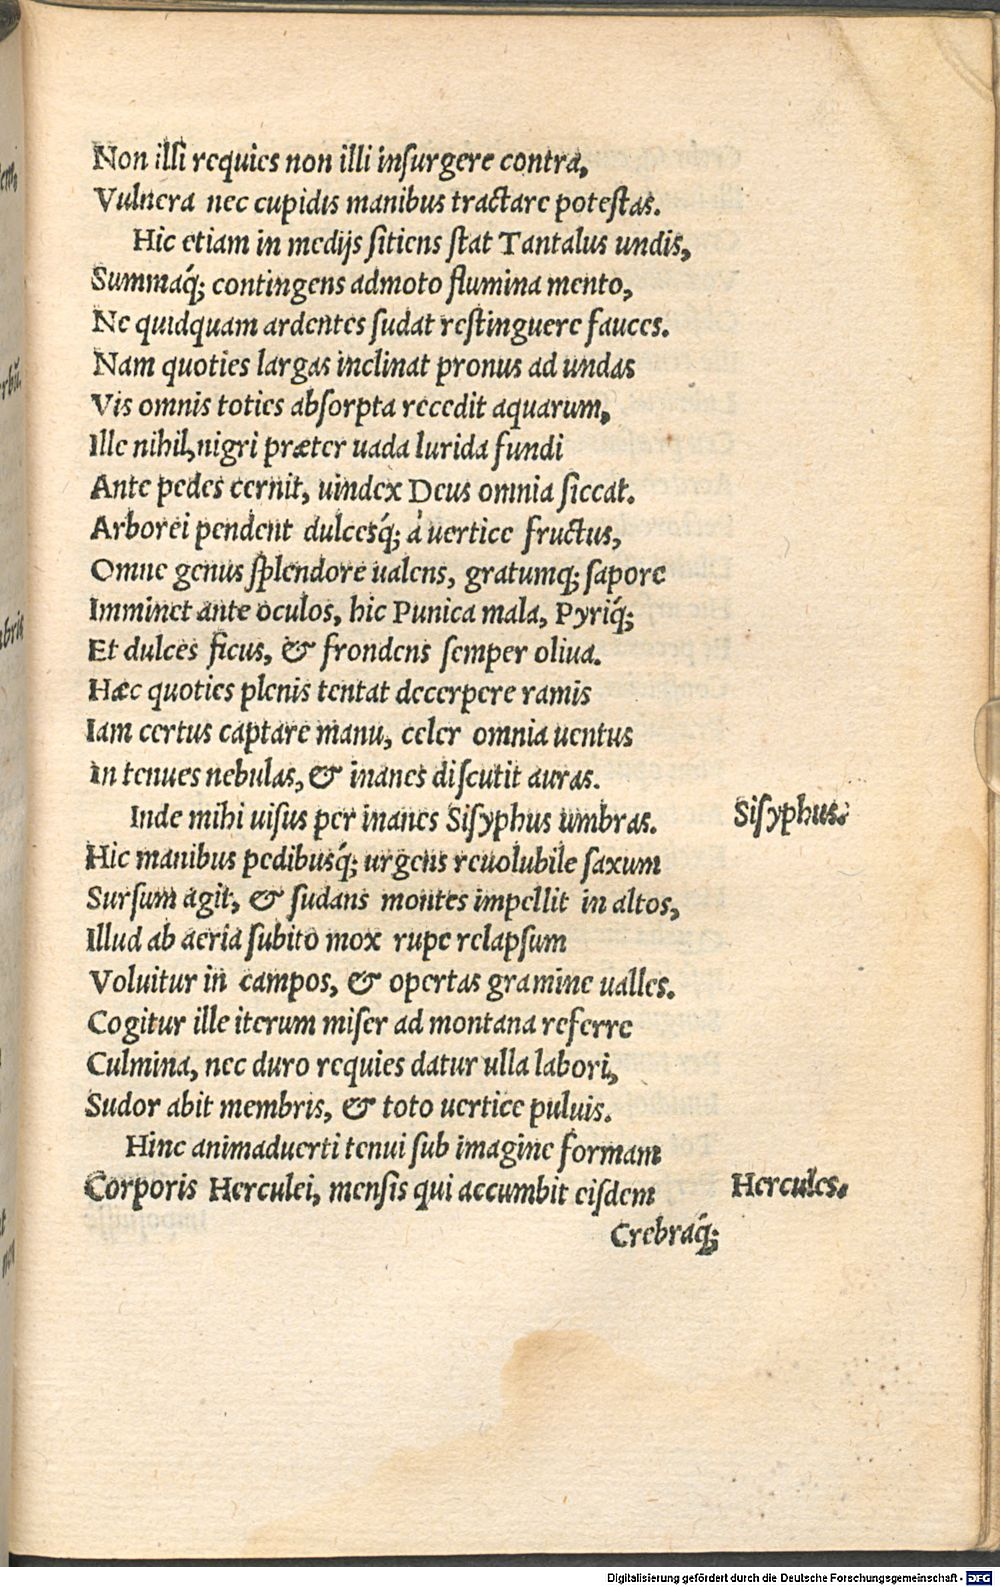 Non illi requies non illi inſurgere contra,
Vulnera nec cupidis manibus tractare poteſtas.
Hic etiam in medijs ſitiens ſtat Tantalus undis,
Summaq́; contingens admoto flumina mento,
Ne quidquam ardentes ſudat reſtinguere fauces.
Nam quoties largas inclinat pronus ad undas
Vis omnis toties abſorpta recedit aquarum,
Ille nihil, nigri præter uada lurida fundi
Ante pedes cernit, uindex Deus omnia ſiccat.
Arborei pendent dulcesq́; à uertice fructus,
Omne genus ſplendore ualens, gratumq; ſapore
Imminet ante oculos, hic Punica mala, Pyriq́;
Et dulces ficus, & frondens ſemper oliua.
Hæc quoties plenis tentat decerpere ramis
Iam certus captare manu, celer omnia uentus
In tenues nebulas, & inanes diſcutit auras.
Inde mihi uiſus per inanes Siſyphus umbras.
Siſyphus.
Hic manibus pedibusq́; urgens reuolubile ſaxum
Surſum agit, & ſudans montes impellit in altos,
Illud ab aeria ſubito mox rupe relapſum
Voluitur in campos, & opertas gramine ualles.
Cogitur ille iterum miſer ad montana referre
Culmina, nec duro requies datur ulla labori,
Sudor abit membris, & toto uertice puluis.
Hinc animaduerti tenui ſub imagine formam
Corporis Herculei, menſis qui accumbit eiſdem
Hercules.
Crebraq́;
Digitalisierung gefördert durch die Deutsche Forschungsgemeinschaft - DFG